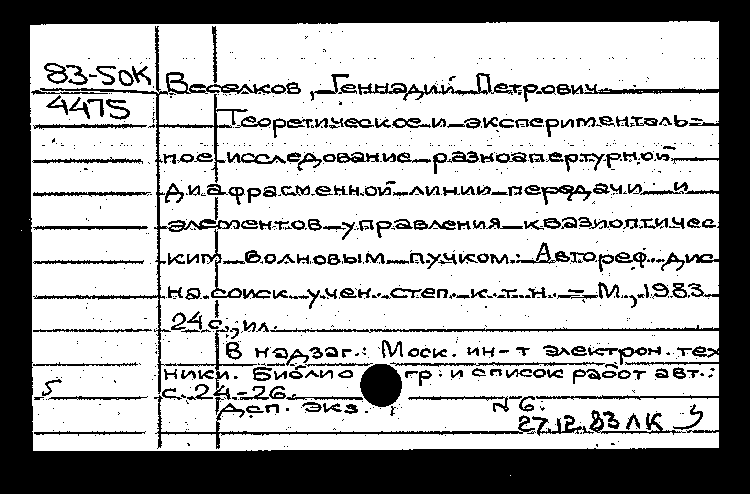 83-50К Веселков, Геннадий Петрович
4475
Теоретическое и эксперименталь-
ное исследование разноапертурной
диафрагменной линии передачи и
элементов управления квазиоптичес
ким волновым пучком: Автореф. дис
на соиск. учен. степ. к.т.н. - М., 1983
24 с., ил.
В надзаг.: Моск. ин-т электрон. тех
ники. Библио гр. и список работ авт.:
5 с. 24-26.
Дсп. Экз. N 6.
27.12.83 ЛК